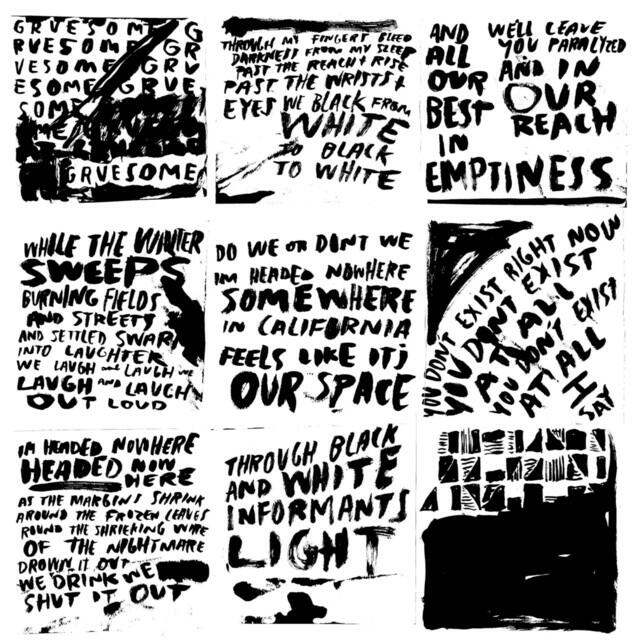 GRUESOME G
RUESOME GR
UESOME GRU
ESOME GRUE
SOME
ME
GRUESOME
THROUGH MY FINGERS BLEED
DARKNESS FROM MY SLEEP
PAST THE REACH + RISE
PAST THE WRISTS +
EYES WE BLACK FROM
WHITE
TO BLACK
TO WHITE
AND
ALL
OUR
BEST
IN
EMPTINESS
WE'LL LEAVE
YOU PARALYZED
AND IN
OUR
REACH
WHILE THE WINTER
SWEEPS
BURNING FIELDS
AND STREETS
AND SETTLED SWAR
INTO LAUGHTER
WE LAUGH AND LAUGH WE
LAUGH AND LAUGH
OUT LOUD
DO WE OR DONT WE
IM HEADED NOWHERE
SOMEWHERE
IN CALIFORNIA
FEELS LIKE ITS
OUR SPACE
YOU DONT EXIST RIGHT NOW
YOU DONT EXIST
AT ALL
YOU DONT EXIST
AT ALL
H
SAY
IM HEADED NOWHERE
HEADED NOW
HERE
AS THE MARGINS SHRINK
AROUND THE FROZEN LEAVES
ROUND THE SHRIEKING WIRE
OF THE NIGHTMARE
DROWN IT OUT
WE DRINK WE
SHUT IT OUT
THROUGH BLACK
AND WHITE
INFORMANTS
LIGHT